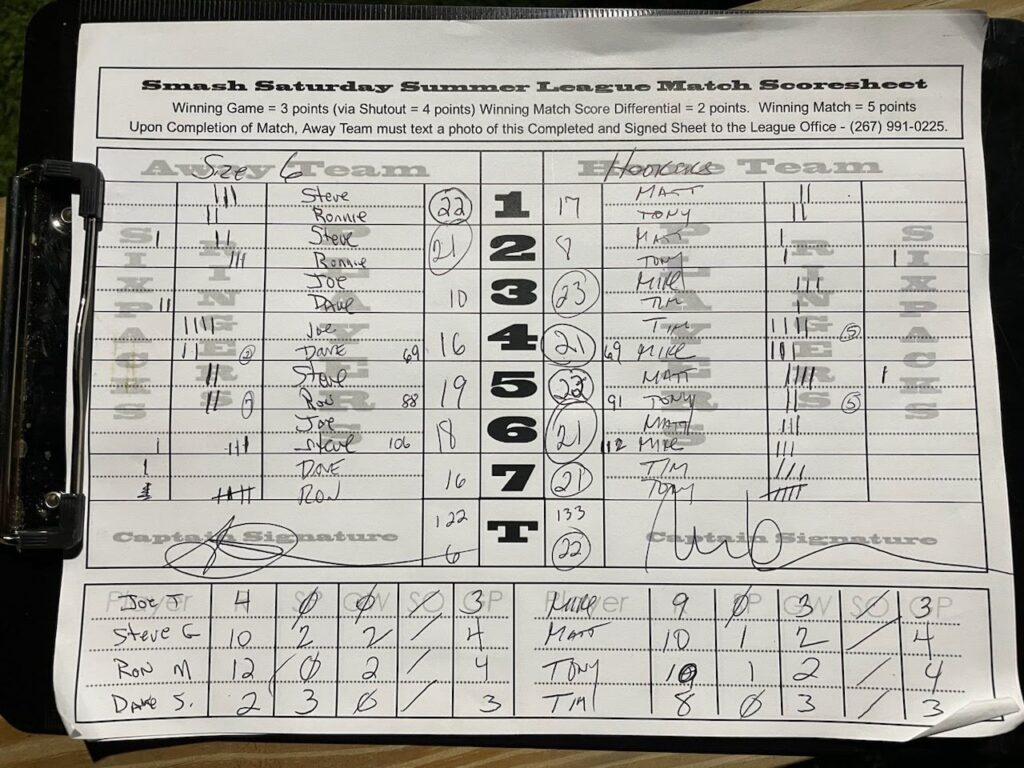 Smash Saturday Summer League Match Scoresheet
Winning Game = 3 points (via Shutout = 4 points) Winning Match Score Differential = 2 points. Winning Match = 5 points
Upon Completion of Match, Away Team must text a photo of this Completed and Signed Sheet to the League Office - (267) 991-0225.
Away Team Size 6 Home Team Hookers
SIXPACKS RINGERS PLAYERS PLAYERS RINGERS SIXPACKS
Steve 22 1 17 MATT
Ronnie TONY
Steve 21 2 8 MATT
Ronnie TONY
JOE 10 3 23 MIKE
DAVE TIM
JOE 16 4 21 TIM 5
2 DAVE 69 69 MIKE
Steve 19 5 22 MATT
RON 88 91 TONY 5
JOE 18 6 21 MATT
Steve 106 112 MIKE
DAVE 16 7 21 TIM
RON TONY
122 T 133
Captain Signature 6 22 Captain Signature
Player SP GW SO GP Player SP GW SO GP
JOE J 4 Ø Ø / 3 MIKE 9 Ø 3 / 3
STEVE G 10 2 2 / 4 MATT 10 1 2 / 4
RON M 12 Ø 2 / 4 TONY 10 1 2 / 4
DAVE S. 2 3 Ø / 3 TIM 8 Ø 3 / 3